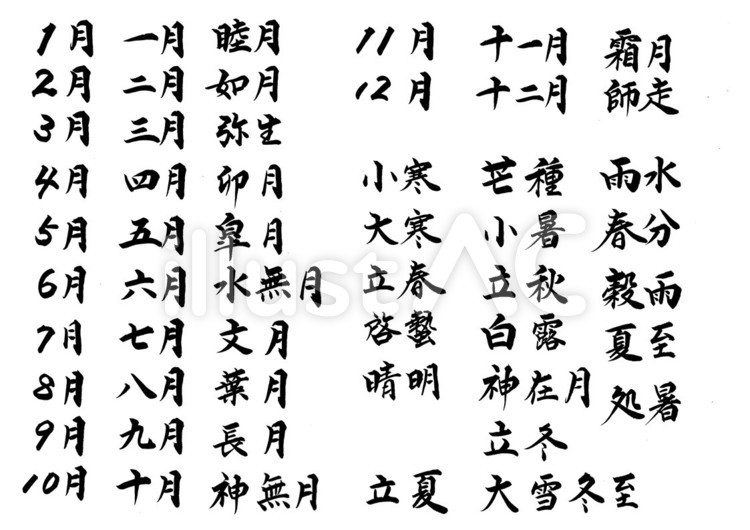 1月 一月 睦月
2月 二月 如月
3月 三月 弥生
4月 四月 卯月
5月 五月 皐月
6月 六月 水無月
7月 七月 文月
8月 八月 葉月
9月 九月 長月
10月 十月 神無月
11月 十一月 霜月
12月 十二月 師走
小寒 芒種 雨水
大寒 小暑 春分
立春 立秋 穀雨
啓蟄 白露 夏至
晴明 神在月 処暑
立冬
立夏 大雪 冬至
illustAC